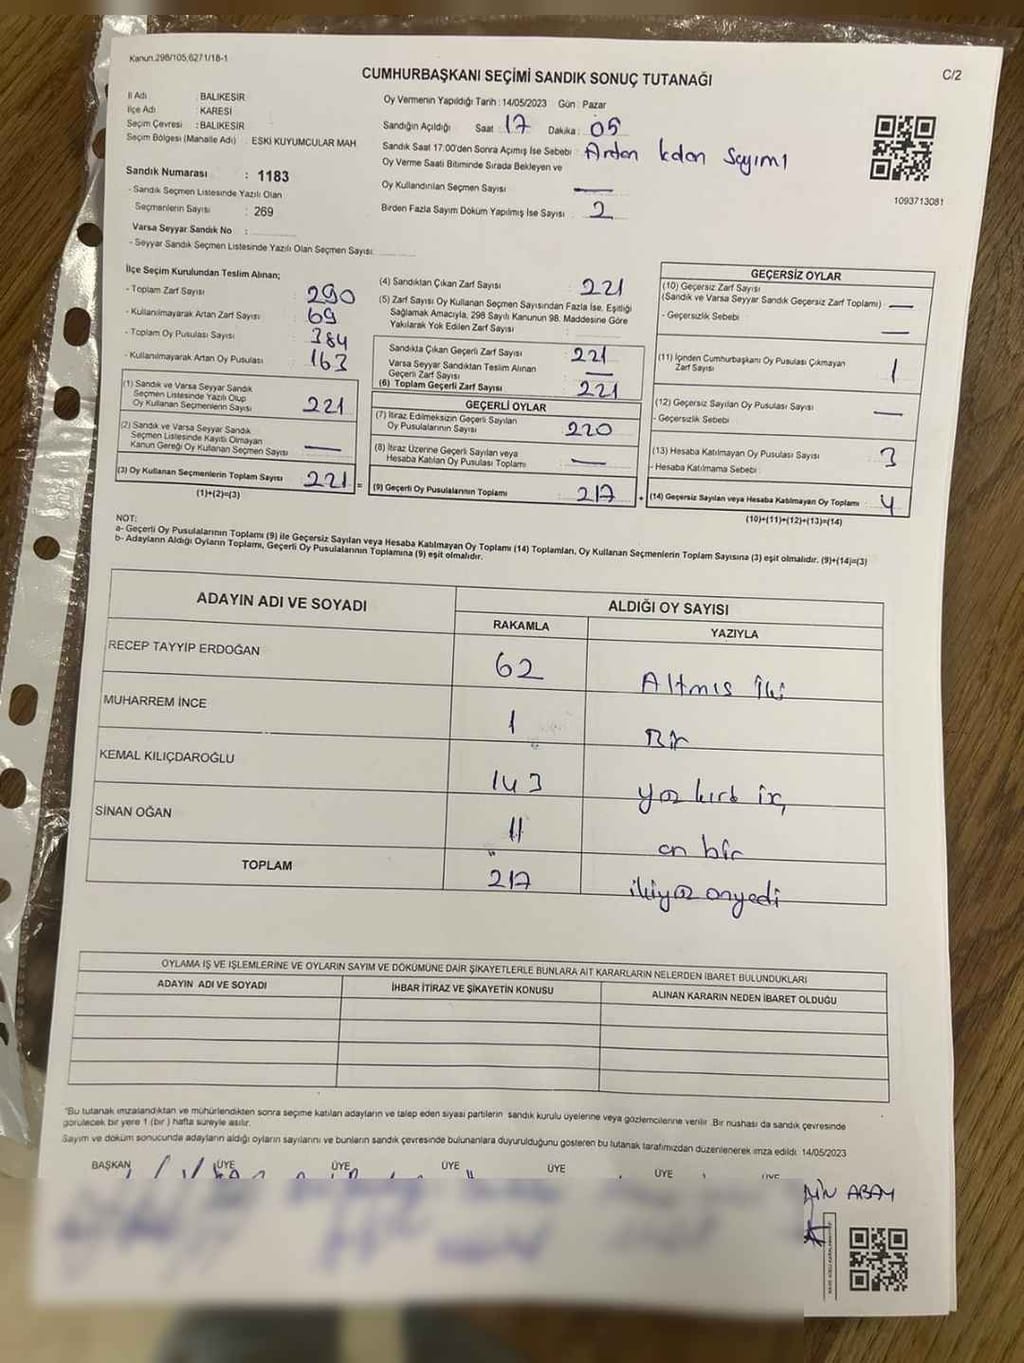 Kanun.298/105,6271/18-1
C/2
CUMHURBAŞKANI SEÇİMİ SANDIK SONUÇ TUTANAĞI
İl Adı : BALIKESİR
İlçe Adı : KARESİ
Seçim Çevresi : BALIKESİR
Seçim Bölgesi (Mahalle Adı) : ESKİ KUYUMCULAR MAH
Sandık Numarası : 1183
- Sandık Seçmen Listesinde Yazılı Olan
Seçmenlerin Sayısı : 269
Varsa Seyyar Sandık No :
- Seyyar Sandık Seçmen Listesinde Yazılı Olan Seçmen Sayısı:
Oy Vermenin Yapıldığı Tarih : 14/05/2023 Gün : Pazar
Sandığın Açıldığı Saat : 17 Dakika : 05
Sandık Saat 17:00'den Sonra Açmış İse Sebebi : Artan kalan sayımı
Oy Verme Saati Bitiminde Sırada Bekleyen ve
Oy Kullandırılan Seçmen Sayısı —
Birden Fazla Sayım Döküm Yapılmış İse Sayısı : 2
1093713081
İlçe Seçim Kurulundan Teslim Alınan;
- Toplam Zarf Sayısı : 290
- Kullanılmayarak Artan Zarf Sayısı : 69
- Toplam Oy Pusulası Sayısı : 384
- Kullanılmayarak Artan Oy Pusulası : 163
(1) Sandık ve Varsa Seyyar Sandık
Seçmen Listesinde Yazılı Olup
Oy Kullanan Seçmenlerin Sayısı : 221
(2) Sandık ve Varsa Seyyar Sandık
Seçmen Listesinde Kayıtlı Olmayan
Kanun Gereği Oy Kullanan Seçmen Sayısı : —
(3) Oy Kullanan Seçmenlerin Toplam Sayısı : 221 =
(1)+(2)=(3)
(4) Sandıktan Çıkan Zarf Sayısı : 221
(5) Zarf Sayısı Oy Kullanan Seçmen Sayısından Fazla İse, Eşitliği
Sağlamak Amacıyla, 298 Sayılı Kanunun 98. Maddesine Göre
Yakılarak Yok Edilen Zarf Sayısı :
Sandıkta Çıkan Geçerli Zarf Sayısı : 221
Varsa Seyyar Sandıktan Teslim Alınan
Geçerli Zarf Sayısı : —
(6) Toplam Geçerli Zarf Sayısı : 221
GEÇERLİ OYLAR
(7) İtiraz Edilmeksizin Geçerli Sayılan
Oy Pusulalarının Sayısı : 220
(8) İtiraz Üzerine Geçerli Sayılan veya
Hesaba Katılan Oy Pusulası Toplamı : —
(9) Geçerli Oy Pusulalarının Toplamı : 217 +
GEÇERSİZ OYLAR
(10) Geçersiz Zarf Sayısı
(Sandık ve Varsa Seyyar Sandık Geçersiz Zarf Toplamı) : —
- Geçersizlik Sebebi : —
(11) İçinden Cumhurbaşkanı Oy Pusulası Çıkmayan
Zarf Sayısı : 1
(12) Geçersiz Sayılan Oy Pusulası Sayısı : —
- Geçersizlik Sebebi :
(13) Hesaba Katılmayan Oy Pusulası Sayısı : 3
- Hesaba Katılmama Sebebi :
(14) Geçersiz Sayılan veya Hesaba Katılmayan Oy Toplamı : 4
(10)+(11)+(12)+(13)=(14)
NOT:
a- Geçerli Oy Pusulalarının Toplamı (9) ile Geçersiz Sayılan veya Hesaba Katılmayan Oy Toplamı (14) Toplamları, Oy Kullanan Seçmenlerin Toplam Sayısına (3) eşit olmalıdır. (9)+(14)=(3)
b- Adayların Aldığı Oyların Toplamı, Geçerli Oy Pusulalarının Toplamına (9) eşit olmalıdır.
ADAYIN ADI VE SOYADI ALDIĞI OY SAYISI
RAKAMLA YAZIYLA
RECEP TAYYİP ERDOĞAN 62 Altmış iki
MUHARREM İNCE 1 Bir
KEMAL KILIÇDAROĞLU 143 yüz kırk üç
SİNAN OĞAN 11 on bir
TOPLAM 217 ikiyüz onyedi
OYLAMA İŞ VE İŞLEMLERİNE VE OYLARIN SAYIM VE DÖKÜMÜNE DAİR ŞİKAYETLERLE BUNLARA AİT KARARLARIN NELERDEN İBARET BULUNDUKLARI
ADAYIN ADI VE SOYADI İHBAR İTİRAZ VE ŞİKAYETİN KONUSU ALINAN KARARIN NEDEN İBARET OLDUĞU
"Bu tutanak imzalandıktan ve mühürlendikten sonra seçime katılan adayların ve talep eden siyasi partilerin sandık kurulu üyelerine veya gözlemcilerine verilir. Bir nüshası da sandık çevresinde
görülecek bir yere 1 (bir) hafta süreyle asılır.
Sayım ve döküm sonucunda adayların aldığı oyların sayılarını ve bunların sandık çevresinde bulunanlara duyurulduğunu gösteren bu tutanak tarafımızdan düzenlenerek imza edildi. 14/05/2023
BAŞKAN ÜYE ÜYE ÜYE ÜYE ÜYE ÜYE
ABAY